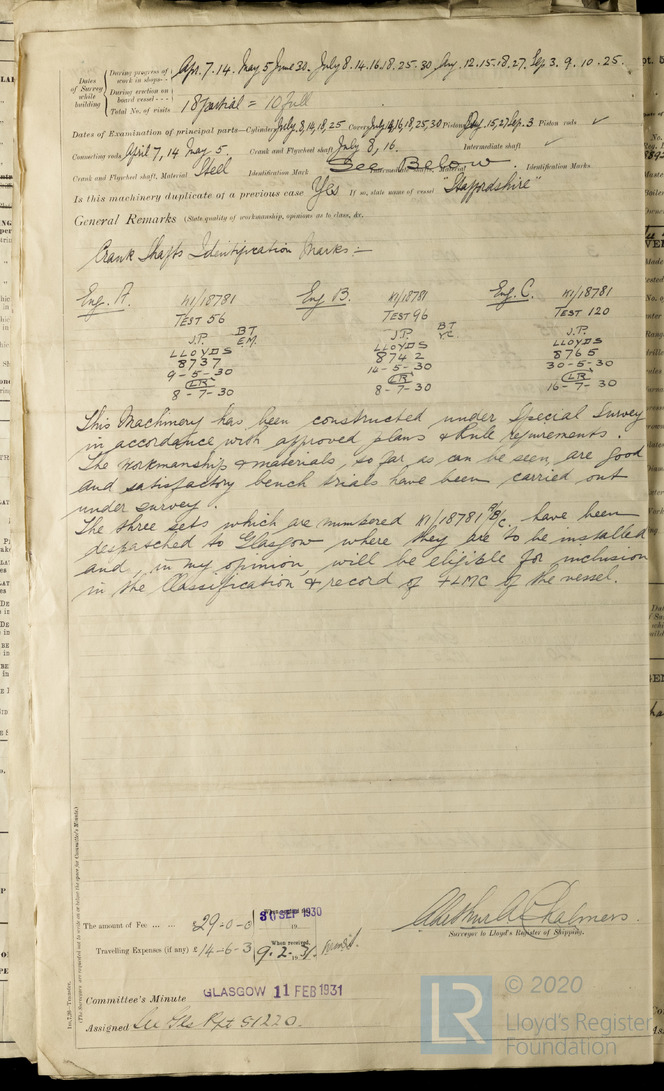 Dates of Survey while building
During progress of work in shops - - Apr. 7. 14. May 5 June 30. July 8. 14. 16. 18. 25. 30 Aug. 12. 15. 18. 27. Sep 3. 9. 10. 25.
During erection on board vessel - - -
Total No. of visits 18 partial = 10 full
Dates of Examination of principal parts—Cylinders July. 8, 14, 18, 25 Covers July 14, 16, 18, 25, 30 Pistons Aug. 15, 27, Sep. 3. Piston rods ✓
Connecting rods April 7, 14 May 5. Crank and Flywheel shaft July 8, 16. Intermediate shaft ✓
Crank and Flywheel shaft, Material Steel Identification Mark See Below Material Identification Marks
Is this machinery duplicate of a previous case Yes If so, state name of vessel "Staffordshire"
General Remarks (State quality of workmanship, opinions as to class, &c.
Crank Shafts Identification Marks:-
Eng. A. K1/18781 Eng B. K1/18781 Eng. C. K1/18781
TEST 56 TEST 96 TEST 120
J.P. BT E.M. J.P. BT Y.C. J.P.
LLOYDS LLOYDS LLOYDS
8737 8742 8765
9-5-30 14-5-30 30-5-30
LR LR LR
8-7-30 8-7-30 16-7-30
This Machinery has been constructed under Special Survey
in accordance with approved plans & Rule requirements.
The workmanship & materials, so far as can be seen, are good
and satisfactory bench trials have been carried out
under survey.
The three sets which are numbered K1/18781 A/B/C. have been
despatched to Glasgow where they are to be installed
and, in my opinion, will be eligible for inclusion
in the Classification & record of +LMC of the vessel.
The amount of Fee ... ... £29-0-0 30 SEP 1930
Travelling Expenses (if any) £14-6-3 When received, 9.2.31.
Arthur A Chalmers.
Surveyor to Lloyd's Register of Shipping.
Committee's Minute GLASGOW 11 FEB 1931
Assigned See Gls Rpt 51220.
(The Surveyors are requested not to write on or below the space for Committee's Minute.)
© 2020
LR Lloyd's Register
Foundation